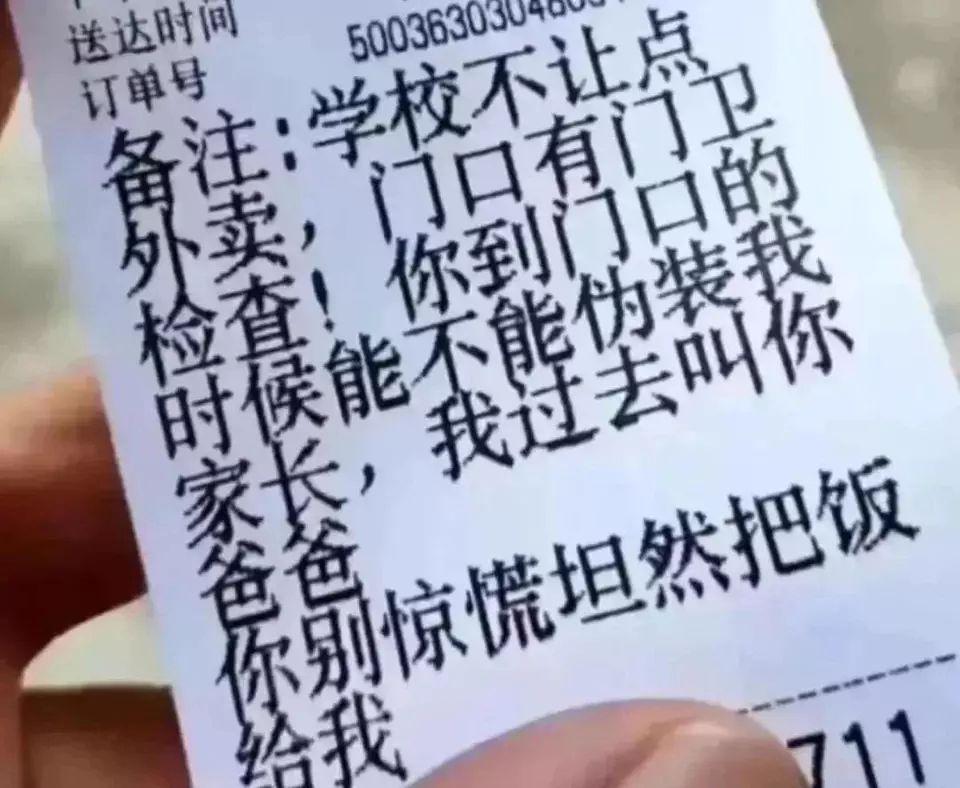 送达时间
订单号
备注:学校不让点
外卖,门口有门卫
检查!你到门口的
时候能不能伪装我
家长,我过去叫你
爸爸
你别惊慌坦然把饭
给我
711